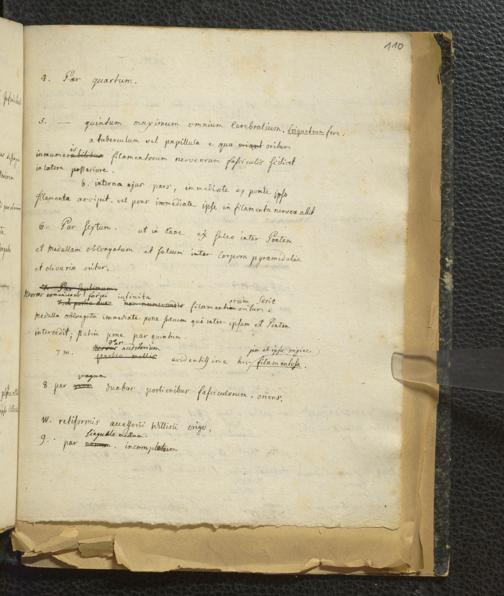 110
4. Par quartum.
5. — quintum maximum omnium cerebralium.
a tuberculum vel papillula e qua oritur
innumeris filamentorum nervorum fasciculis
in latere posteriore.
b. interna ejus pars, immediate ex ponte ipso
filamenta accipit, vel pons immediate ipse in filamenta nervea abit
6. Par sextum. ut in cane ex sulco inter Pontem
et medullam oblongatam et sulcum inter corpora pyramidalia
et olivaria oritur.
7. Par septimum
Nervus communicans faciei infinita
filamentorum serie oritur e
medulla oblongata immediate pone sulcum qui inter ipsam et Pontem
intercedit; statim pone par quintum
7m. Par nervus acusticum
evidentissime hic filamentosa.
8. par vagum duabus portionibus fasciculorum, oriens.
N. retiformis accessorii Willisii origo.
9. par linguale medium incompletum